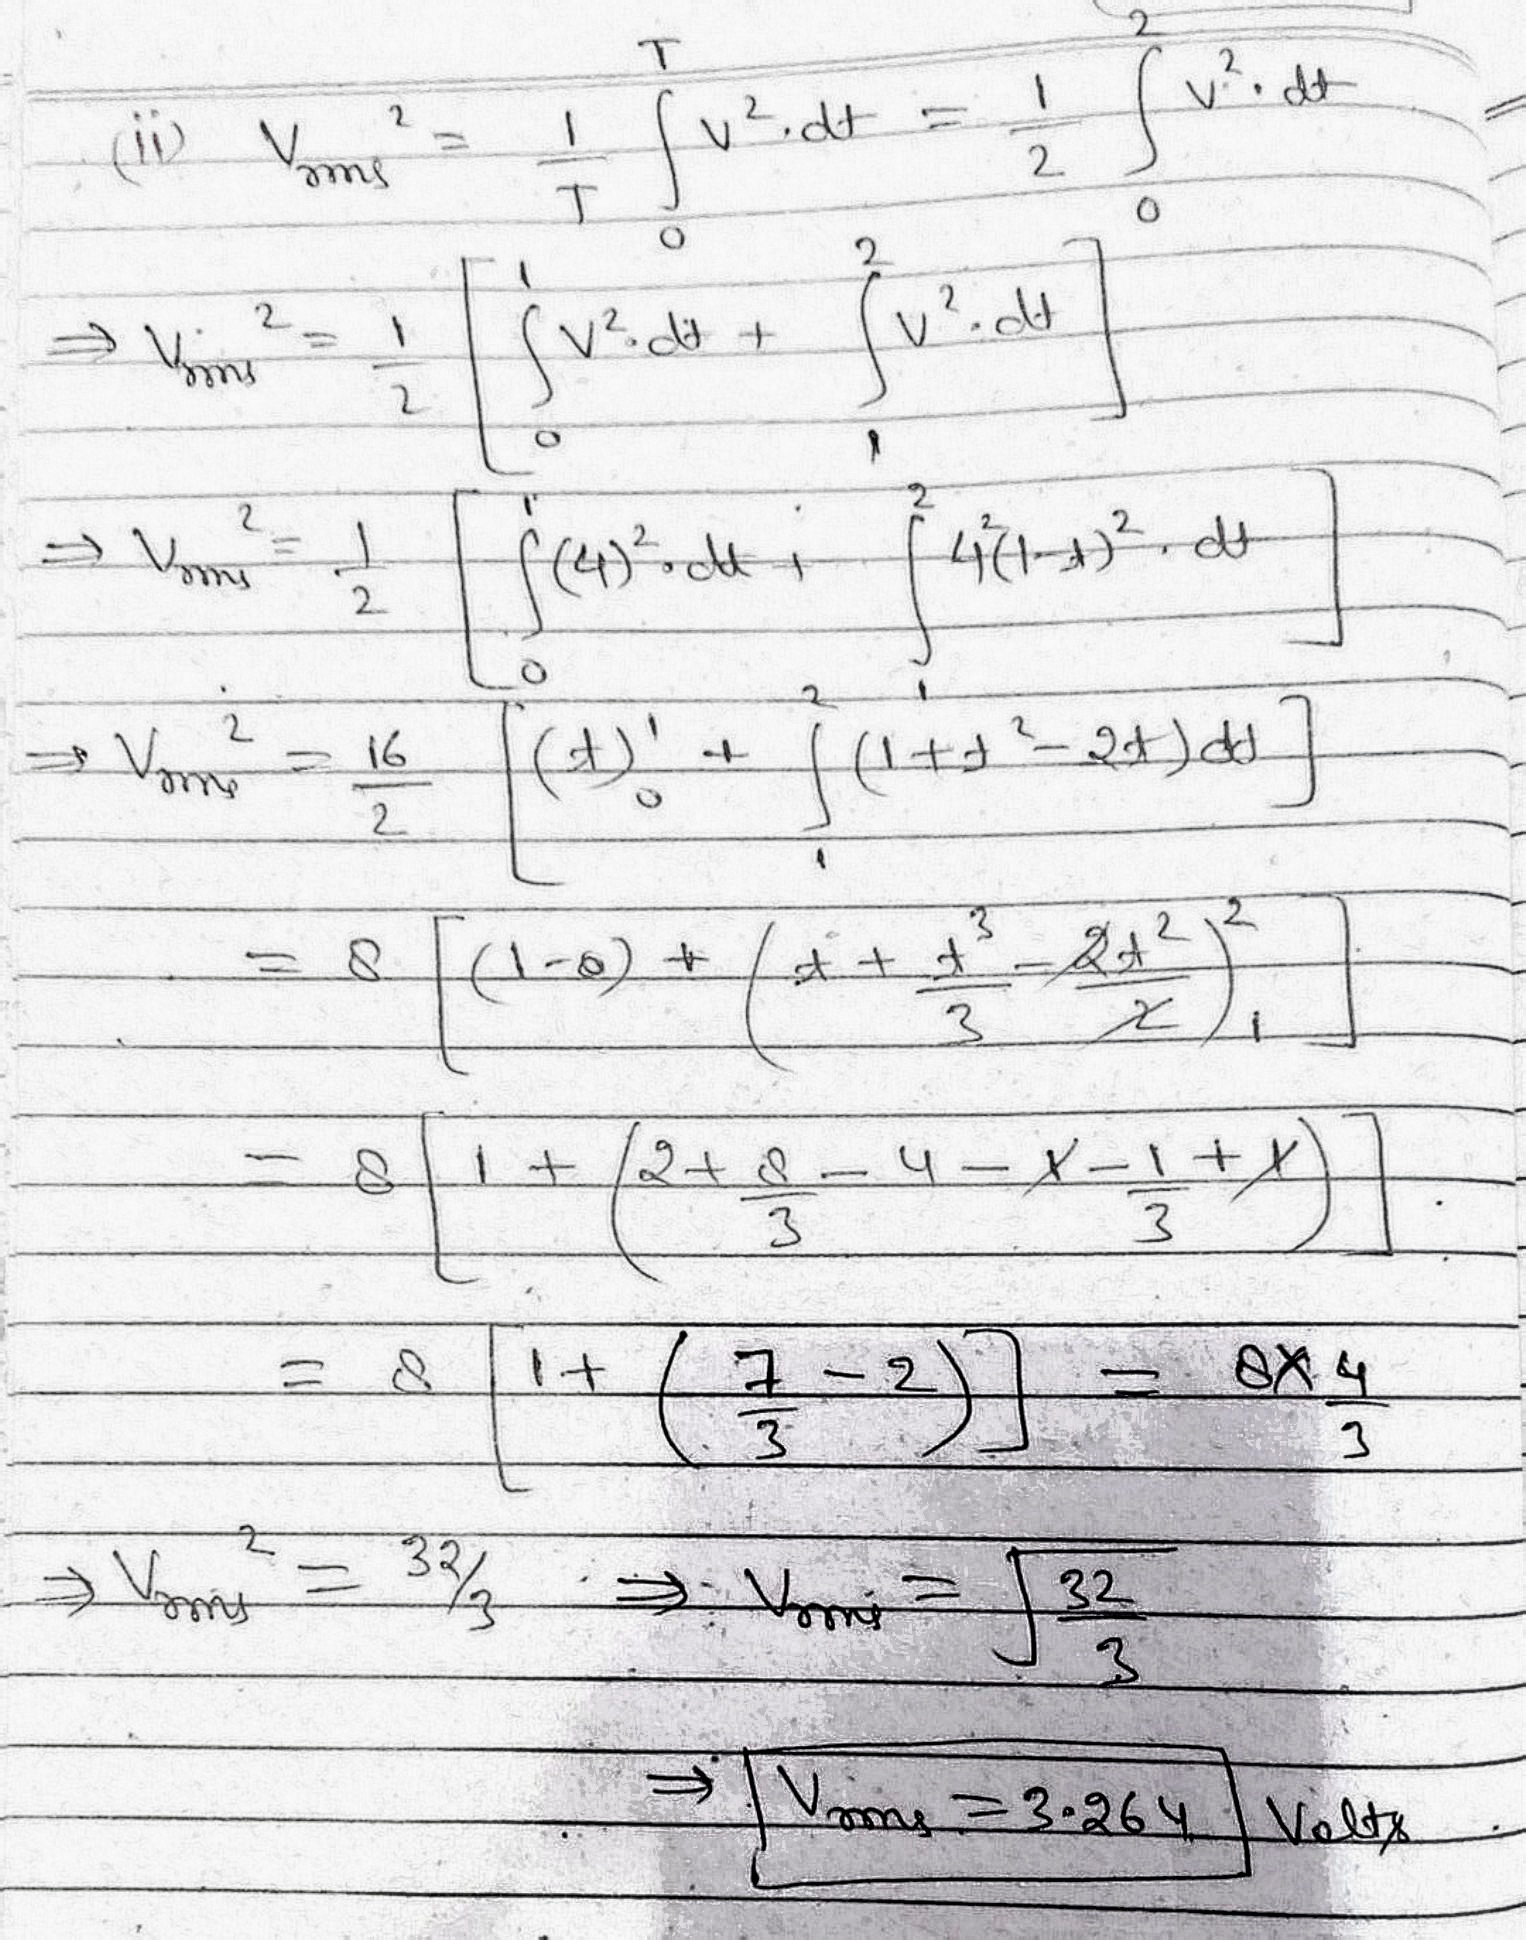 (ii) Vrms² = 1/T ∫₀ᵀ v²·dt = 1/2 ∫₀² v²·dt
⇒ Vrms² = 1/2 [ ∫₀¹ v²·dt + ∫₁² v²·dt ]
⇒ Vrms² = 1/2 [ ∫₀¹ (4)²·dt + ∫₁² 4²(1-t)²·dt ]
⇒ Vrms² = 16/2 [ (t)₀¹ + ∫₁² (1+t²-2t)dt ]
= 8 [ (1-0) + ( t + t³/3 - 2t²/2 )₁² ]
= 8 [ 1 + ( 2 + 8/3 - 4 - 1 - 1/3 + 1 ) ]
= 8 [ 1 + ( 7/3 - 2 ) ] = 8 × 4/3
⇒ Vrms² = 32/3 ⇒ Vrms = √(32/3)
⇒ Vrms = 3.264 Volts